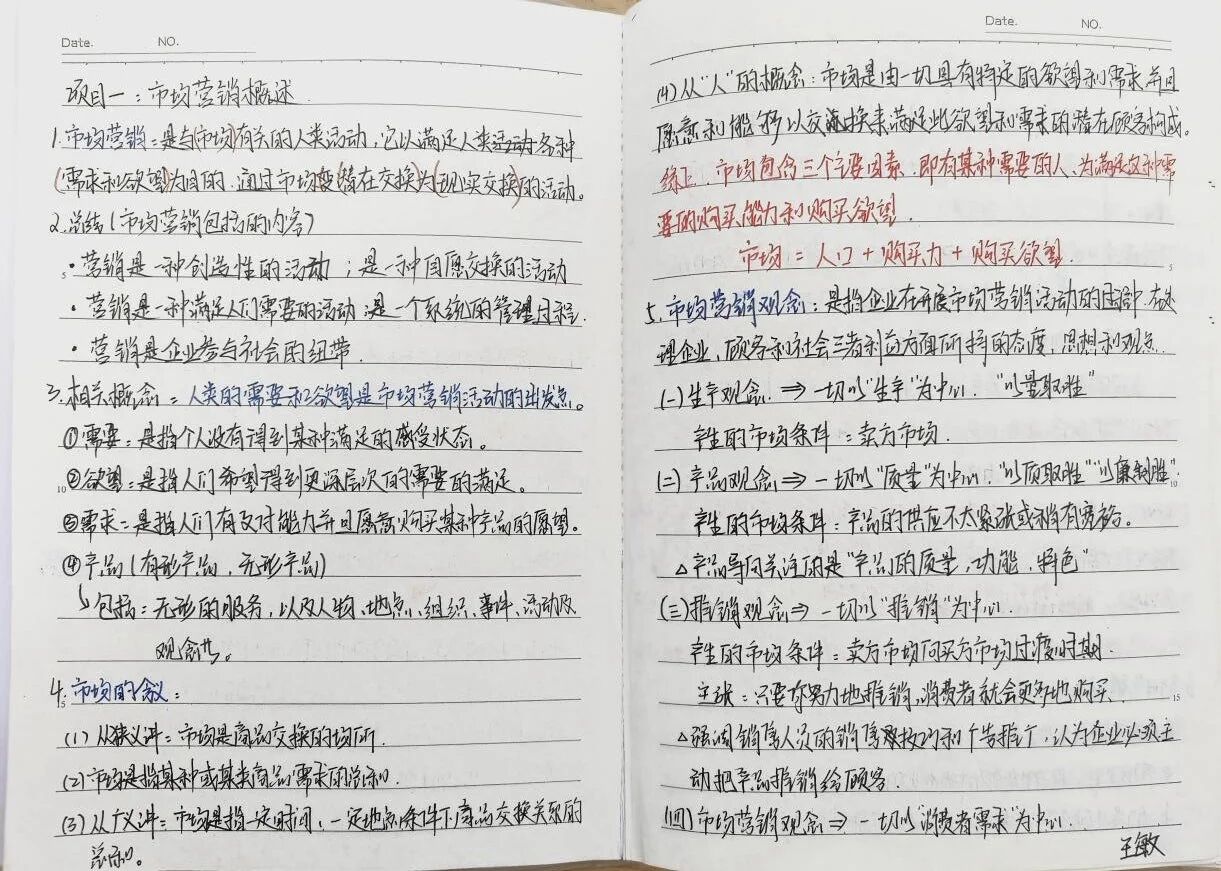 Date. NO.
项目一：市场营销概述.
1.市场营销：是与(市场)有关的人类活动，它以满足人类活动各种
(需求和欲望)为目的，通过市场变(潜在交换)为(现实交换)的活动。
2.总结(市场营销包括的内容)
·营销是一种创造性的活动；是一种自愿交换的活动
·营销是一种满足人们需要的活动 是一个系统的管理过程.
·营销是企业参与社会的纽带.
3.相关概念：人类的需要和欲望是市场营销活动的出发点。
①需要：是指个人没有得到某种满足的感受状态。
②欲望：是指人们希望得到更深层次的需要的满足。
③需求：是指人们有支付能力并且愿意购买某种产品的愿望。
④产品(有形产品，无形产品)
↳包括：无形的服务，以及人物、地点、组织、事件、活动及
观念性。
4.市场的含义：
(1)从狭义讲：市场是商品交换的场所.
(2)市场是指某种或某类商品需求的总和.
(3)从广义讲：市场是指一定时间，一定地点条件下商品交换关系的
总和。
Date. NO.
(4)从"人"的概念：市场是由一切具有特定的欲望和需求并且
愿意和能够以交换来满足此欲望和需求的潜在顾客构成。
综上，市场包含三个主要因素，即有某种需要的人、为满足这种需
要的购买能力和购买欲望.
市场 = 人口 + 购买力 + 购买欲望.
5.市场营销观念：是指企业在开展市场营销活动的过程中，在处
理企业，顾客和社会三者利益方面所持的态度，思想和观点.
(一)生产观念. ⇒ 一切以"生产"为中心. "以量取胜"
产生的市场条件：卖方市场.
(二)产品观念 ⇒ 一切以"质量"为中心. "以质取胜" "以廉制胜"
产生的市场条件：产品的供应不太紧张或稍有宽裕。
△产品导向关注的是"产品的质量，功能，特色"
(三)推销观念 ⇒ 一切以"推销"为中心.
产生的市场条件：卖方市场向买方市场过渡时期.
主张：只要你努力地推销，消费者就会更多地购买.
△强调销售人员的销售技巧和广告推广，认为企业必须主
动把产品推销给顾客.
(四)市场营销观念 ⇒ 一切以"消费者需求"为中心.
王敏